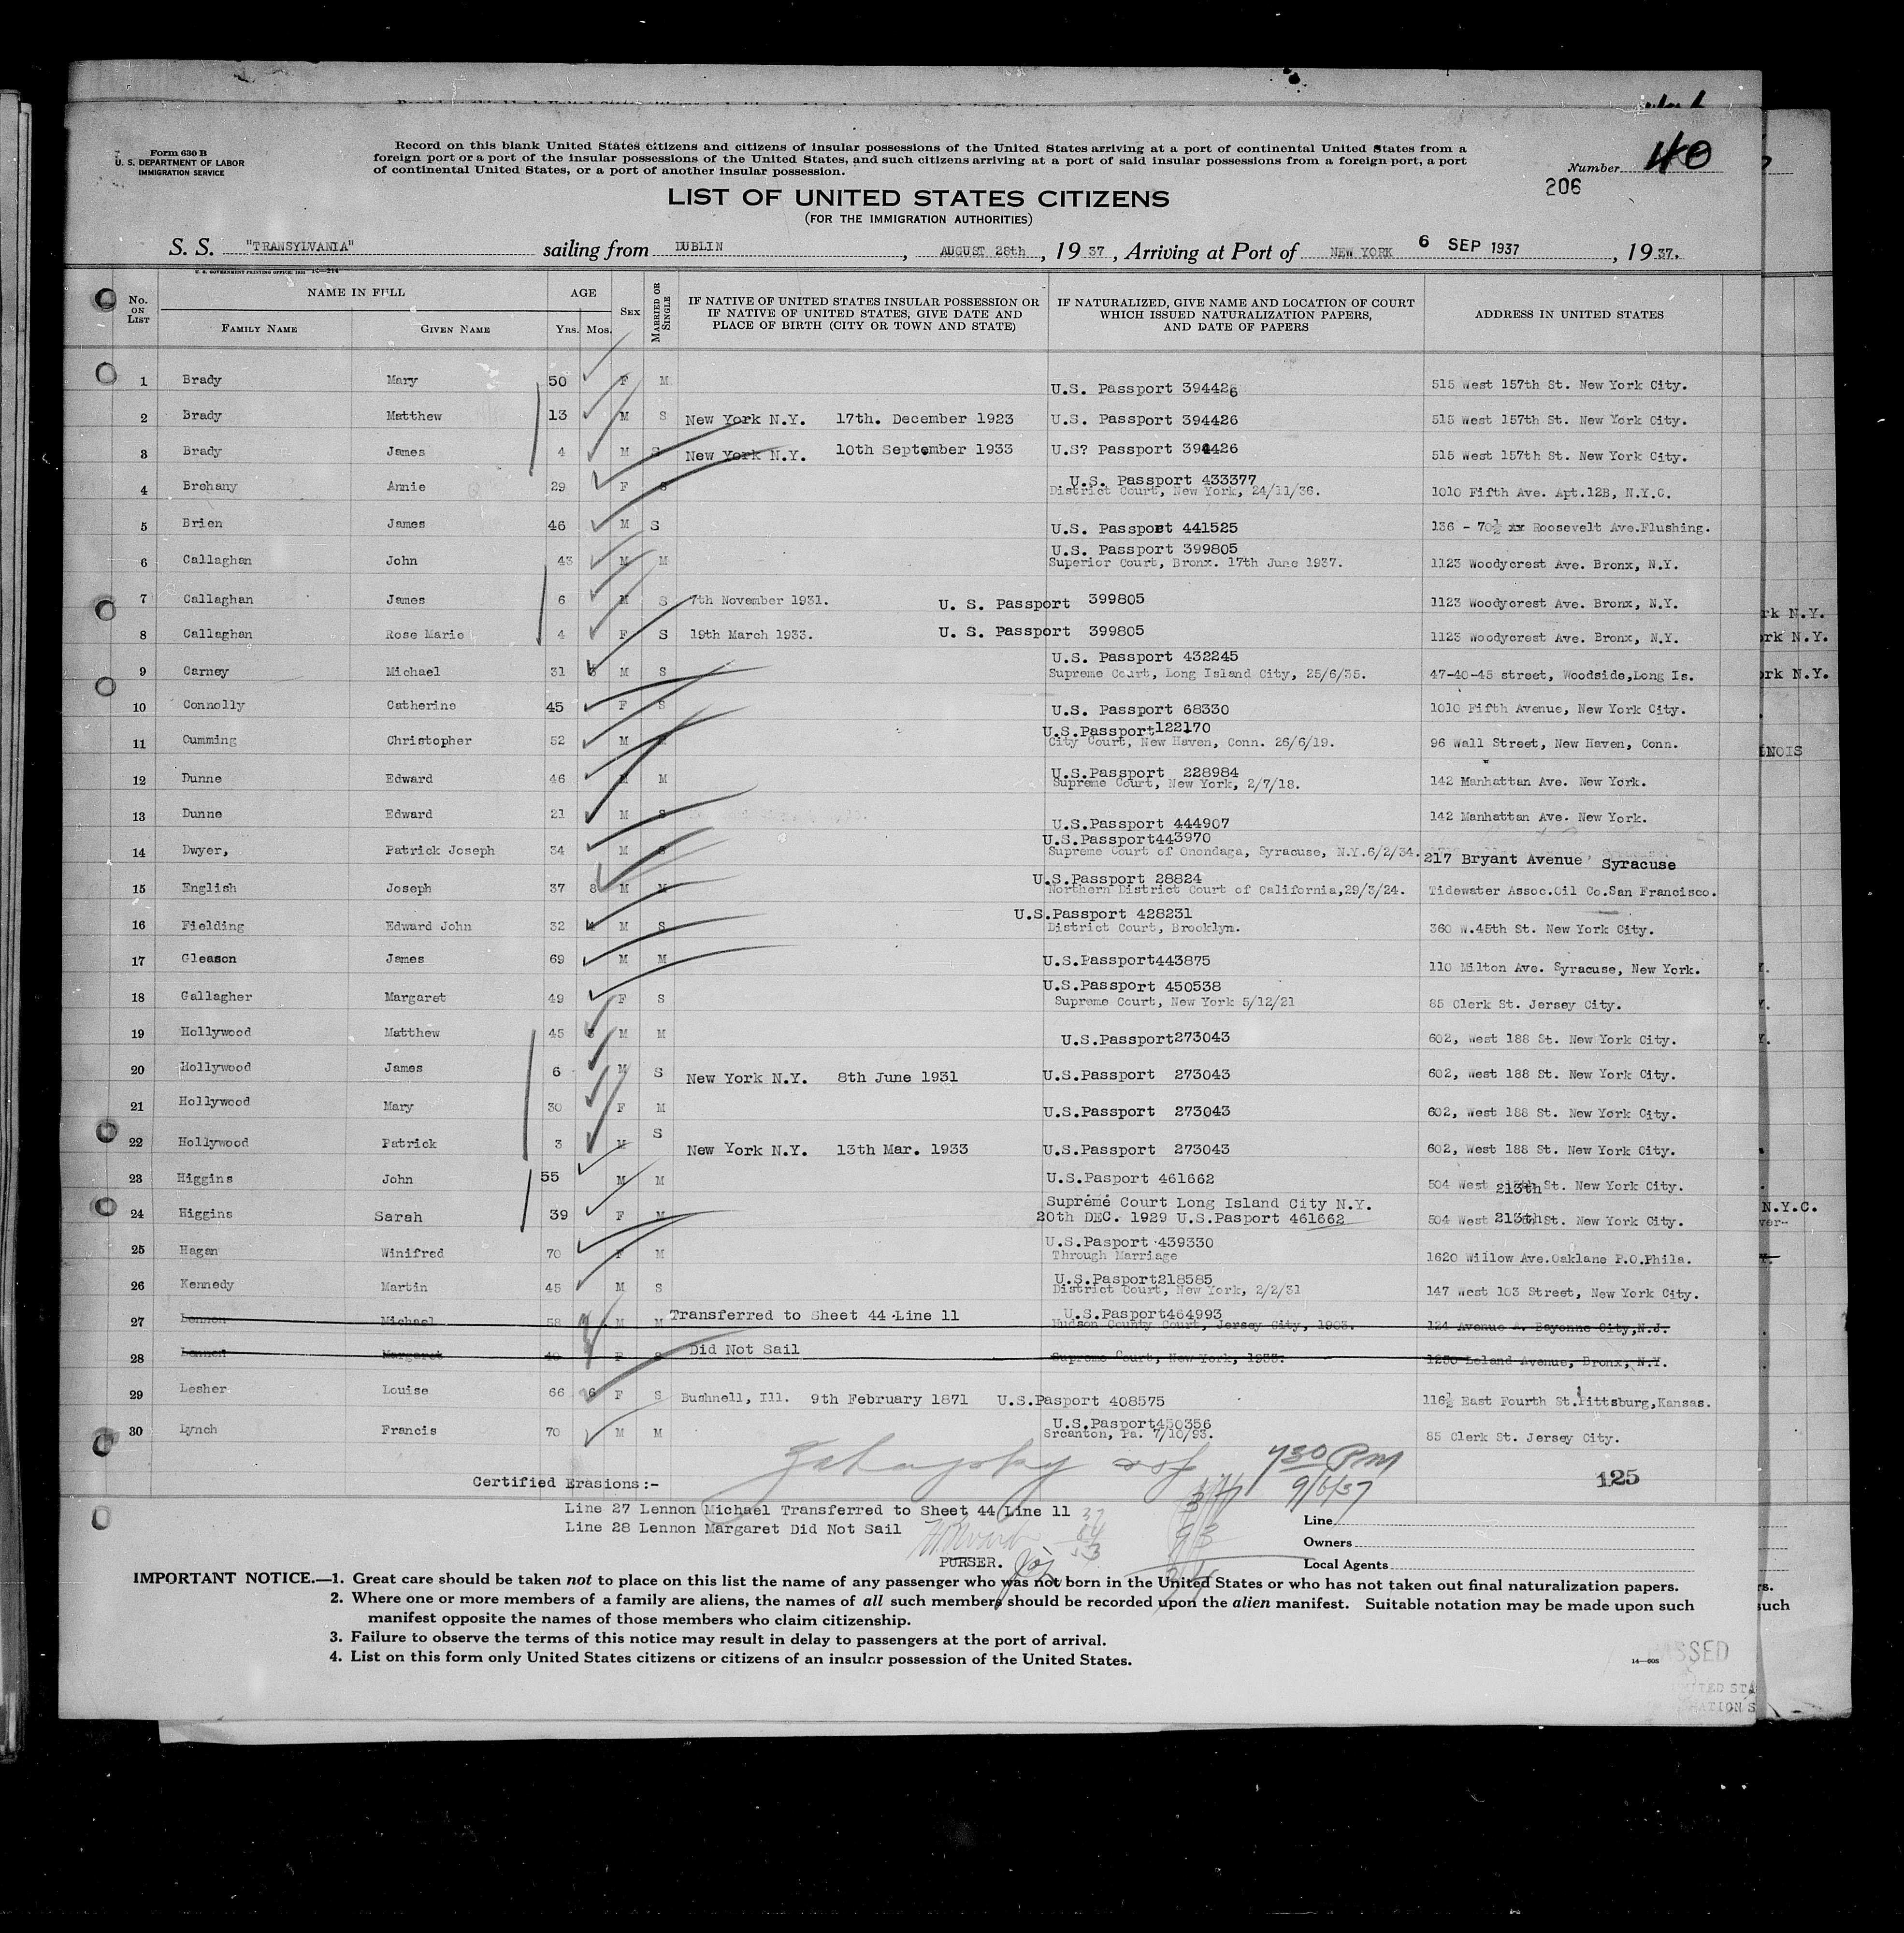 Form 630 B
U. S. DEPARTMENT OF LABOR
IMMIGRATION SERVICE
Record on this blank United States citizens and citizens of insular possessions of the United States arriving at a port of continental United States from a
foreign port or a port of the insular possessions of the United States, and such citizens arriving at a port of said insular possessions from a foreign port, a port
of continental United States, or a port of another insular possession.
Number 40
206
LIST OF UNITED STATES CITIZENS
(FOR THE IMMIGRATION AUTHORITIES)
S. S. "TRANSYLVANIA" sailing from DUBLIN, AUGUST 28th, 1937, Arriving at Port of NEW YORK 6 SEP 1937, 1937.
U. S. GOVERNMENT PRINTING OFFICE: 1931 14—214
No. ON LIST NAME IN FULL FAMILY NAME GIVEN NAME AGE YRS. MOS. SEX MARRIED OR SINGLE IF NATIVE OF UNITED STATES INSULAR POSSESSION OR IF NATIVE OF UNITED STATES, GIVE DATE AND PLACE OF BIRTH (CITY OR TOWN AND STATE) IF NATURALIZED, GIVE NAME AND LOCATION OF COURT WHICH ISSUED NATURALIZATION PAPERS, AND DATE OF PAPERS ADDRESS IN UNITED STATES
1 Brady Mary 50 F M U.S. Passport 394426 515 West 157th St. New York City.
2 Brady Matthew 13 M S New York N.Y. 17th. December 1923 U.S. Passport 394426 515 West 157th St. New York City.
3 Brady James 4 M S New York N.Y. 10th September 1933 U.S? Passport 394426 515 West 157th St. New York City.
4 Brehany Annie 29 F S U.S. Passport 433377 District Court, New York, 24/11/36. 1010 Fifth Ave. Apt.12B, N.Y.C.
5 Brien James 46 M S U.S. Passport 441525 136 - 70½ xx Roosevelt Ave.Flushing.
6 Callaghan John 43 M M U.S. Passport 399805 Superior Court, Bronx. 17th June 1937. 1123 Woodycrest Ave. Bronx, N.Y.
7 Callaghan James 6 M S 7th November 1931. U. S. Passport 399805 1123 Woodycrest Ave. Bronx, N.Y.
8 Callaghan Rose Marie 4 F S 19th March 1933. U. S. Passport 399805 1123 Woodycrest Ave. Bronx, N.Y.
9 Carney Michael 31 M S U.S. Passport 432245 Supreme Court, Long Island City, 25/6/35. 47-40-45 street, Woodside,Long Is.
10 Connolly Catherine 45 F S U.S. Passport 68330 1010 Fifth Avenue, New York City.
11 Cumming Christopher 52 M M U.S.Passport122170 City Court, New Haven, Conn. 26/6/19. 96 Wall Street, New Haven, Conn.
12 Dunne Edward 46 M M U.S.Passport 228984 Supreme Court, New York, 2/7/18. 142 Manhattan Ave. New York.
13 Dunne Edward 21 M S U.S.Passport 444907 142 Manhattan Ave. New York.
14 Dwyer, Patrick Joseph 34 M S U.S.Passport443970 Supreme Court of Onondaga, Syracuse, N.Y.6/2/34. 217 Bryant Avenue Syracuse
15 English Joseph 37 8 M M U.S.Passport 28824 Northern District Court of California,29/3/24. Tidewater Assoc.Oil Co.San Francisco.
16 Fielding Edward John 32 4 M S U.S.Passport 428231 District Court, Brooklyn. 360 W.45th St. New York City.
17 Gleason James 69 M M U.S.Passport443875 110 Milton Ave. Syracuse, New York.
18 Gallagher Margaret 49 F S U.S.Passport 450538 Supreme Court, New York 5/12/21 85 Clerk St. Jersey City.
19 Hollywood Matthew 45 M M U.S.Passport273043 602, West 188 St. New York City.
20 Hollywood James 6 M S New York N.Y. 8th June 1931 U.S.Passport 273043 602, West 188 St. New York City.
21 Hollywood Mary 30 F M U.S.Passport 273043 602, West 188 St. New York City.
22 Hollywood Patrick 3 M S New York N.Y. 13th Mar. 1933 U.S.Passport 273043 602, West 188 St. New York City.
23 Higgins John 55 M M U.S.Pasport 461662 504 West 213th St. New York City.
24 Higgins Sarah 39 F M Supreme Court Long Island City N.Y. 20th DEC. 1929 U.S.Pasport 461662 504 West 213th St. New York City.
25 Hagan Winifred 70 F M U.S.Pasport 439330 Through Marriage 1620 Willow Ave.Oaklane P.O.Phila.
26 Kennedy Martin 45 M S U.S.Pasport218585 District Court, New York, 2/2/31 147 West 103 Street, New York City.
27 Lennon Michael 58 M M Transferred to Sheet 44 Line 11 U.S.Pasport464993 Hudson County Court, Jersey City, 1903. 124 Avenue A. Bayonne City,N.J.
28 Lennon Margaret 40 F S Did Not Sail Supreme Court, New York, 1933. 1250 Leland Avenue, Bronx, N.Y.
29 Lesher Louise 66 6 F S Bushnell, Ill. 9th February 1871 U.S.Pasport 408575 116½ East Fourth St.Pittsburg,Kansas.
30 Lynch Francis 70 M M U.S.Pasport450356 Srcanton, Pa. 7/10/93. 85 Clerk St. Jersey City.
730 PM
9/6/37
125
Certified Erasions:-
Line 27 Lennon Michael Transferred to Sheet 44 Line 11
Line 28 Lennon Margaret Did Not Sail
PURSER.
Line
Owners
Local Agents
IMPORTANT NOTICE.—1. Great care should be taken not to place on this list the name of any passenger who was not born in the United States or who has not taken out final naturalization papers.
2. Where one or more members of a family are aliens, the names of all such members should be recorded upon the alien manifest. Suitable notation may be made upon such
manifest opposite the names of those members who claim citizenship.
3. Failure to observe the terms of this notice may result in delay to passengers at the port of arrival.
4. List on this form only United States citizens or citizens of an insular possession of the United States.